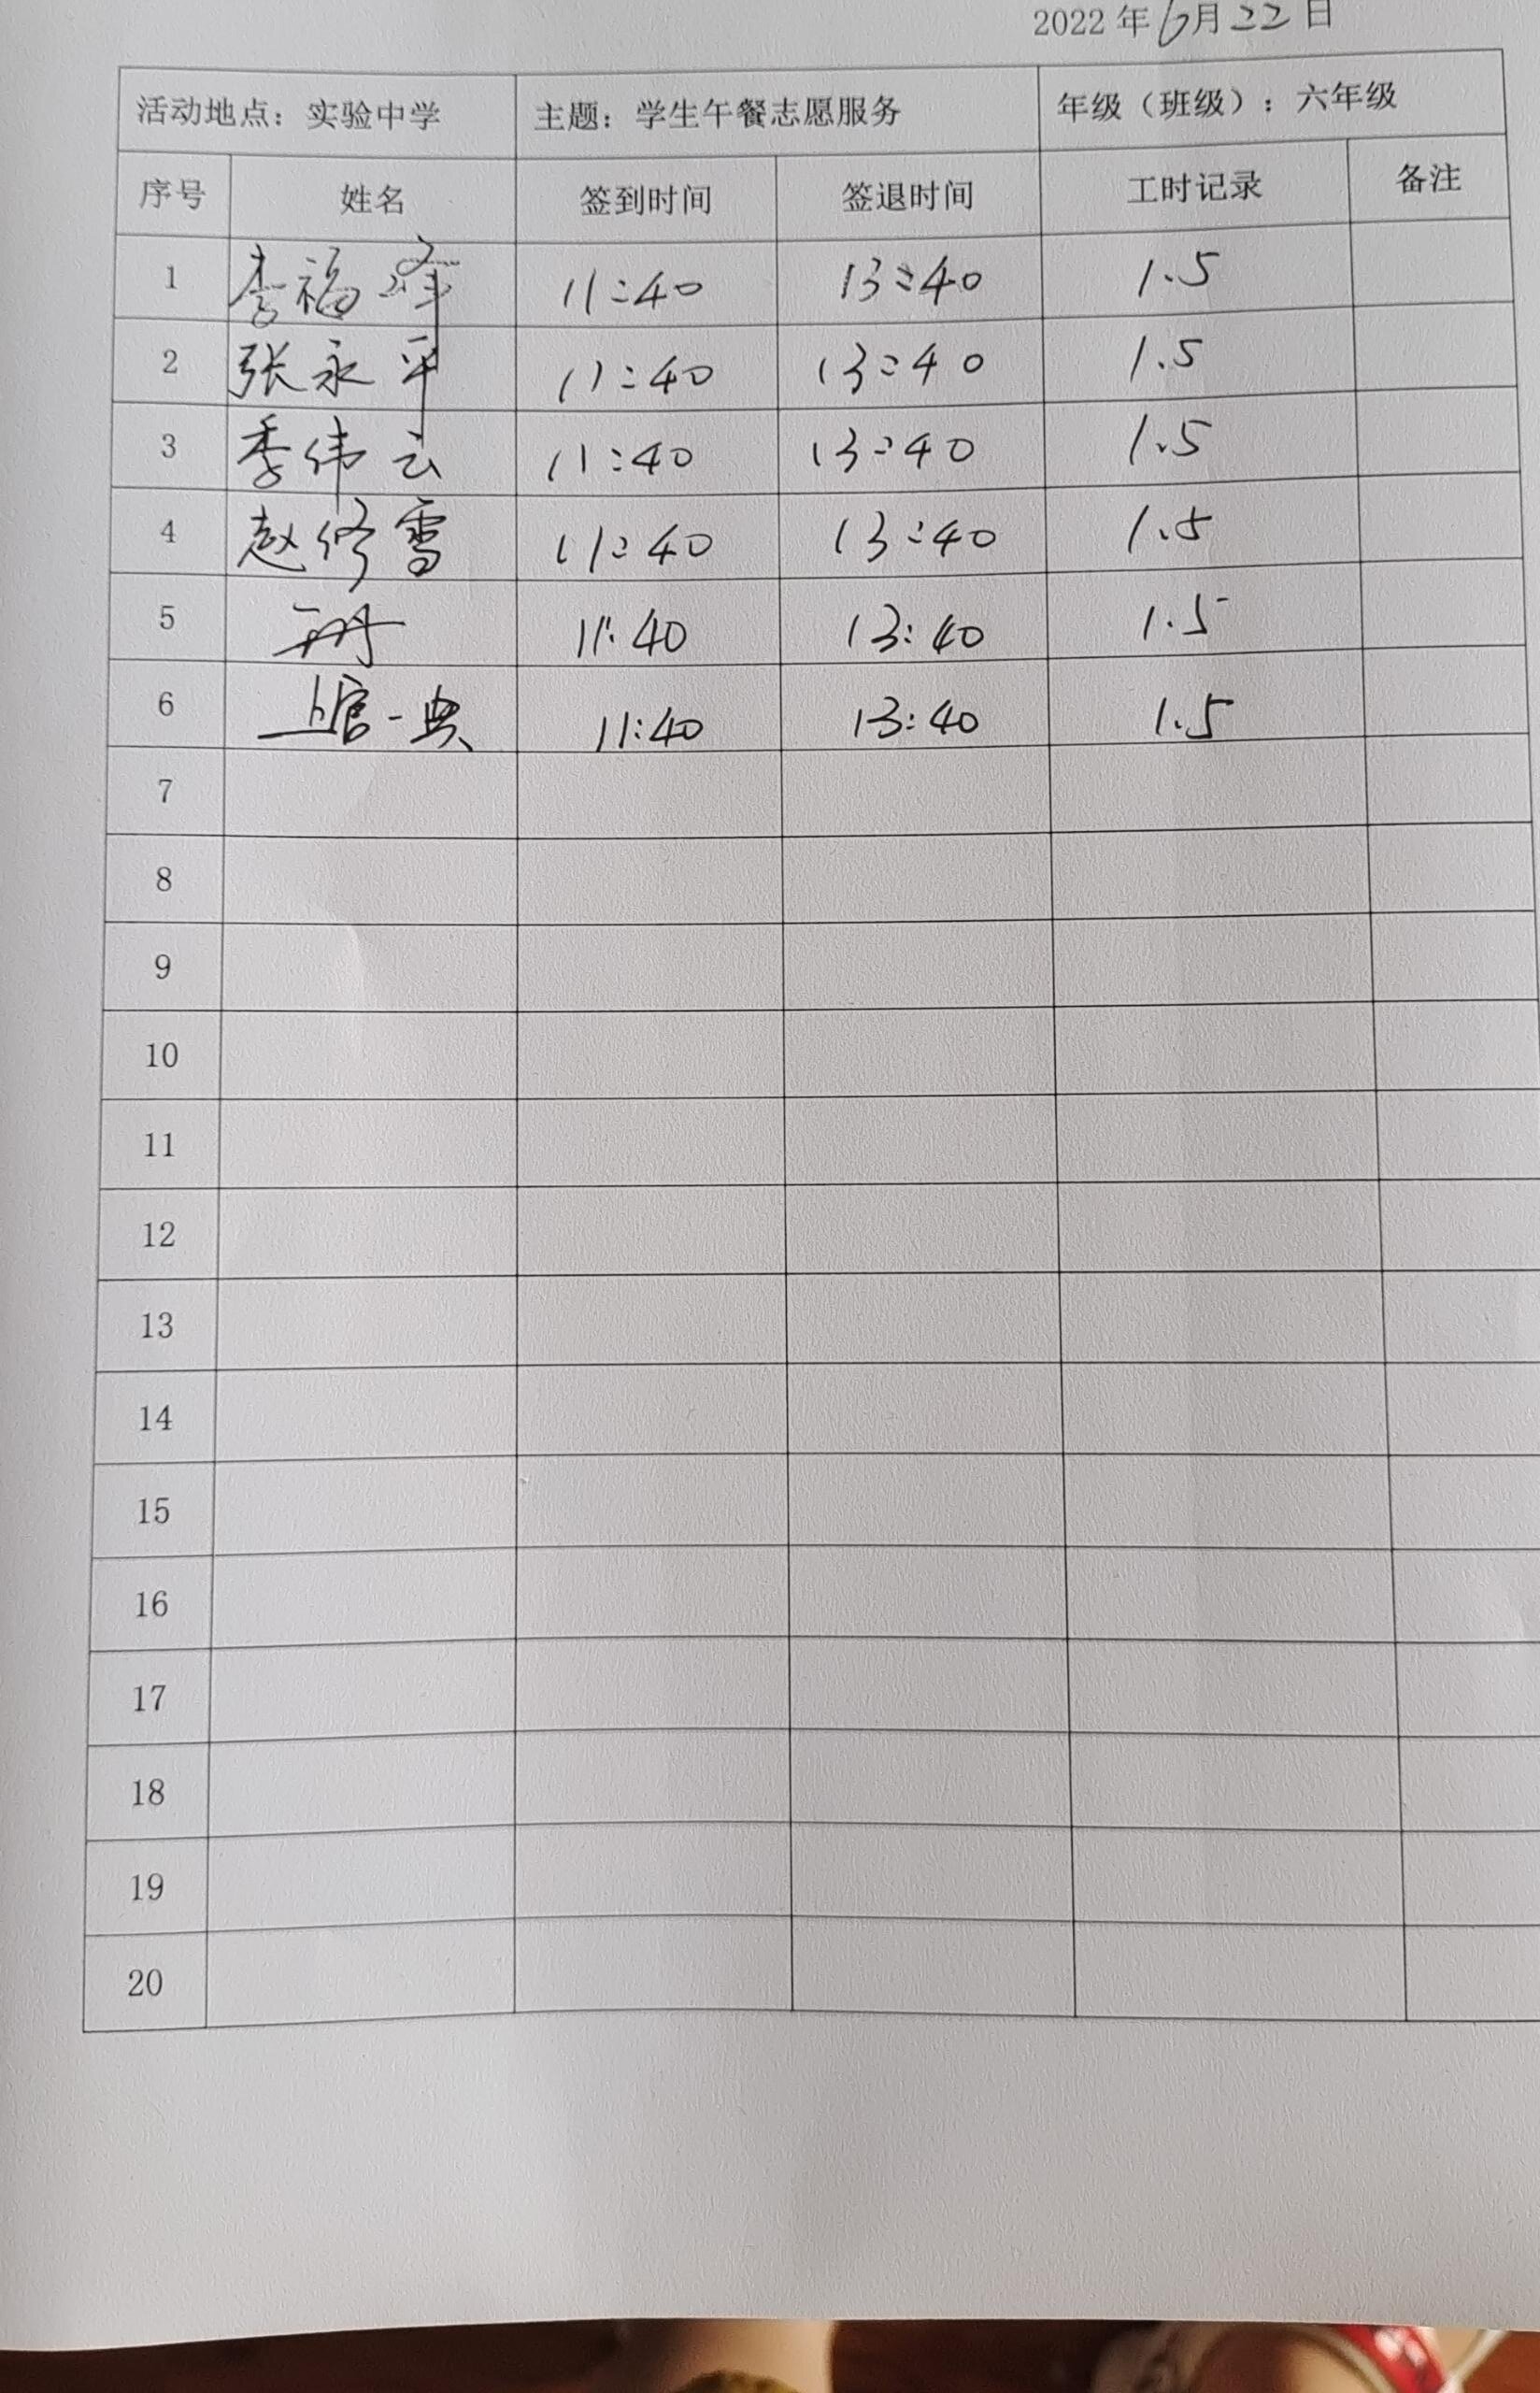 2022年6月22日
活动地点：实验中学 主题：学生午餐志愿服务 年级（班级）：六年级
序号 姓名 签到时间 签退时间 工时记录 备注
1 李福 11:40 13:40 1.5
2 张永平 11:40 13:40 1.5
3 季伟云 11:40 13:40 1.5
4 赵修雪 11:40 13:40 1.5
5 11:40 13:40 1.5
6 上官一典 11:40 13:40 1.5
7
8
9
10
11
12
13
14
15
16
17
18
19
20